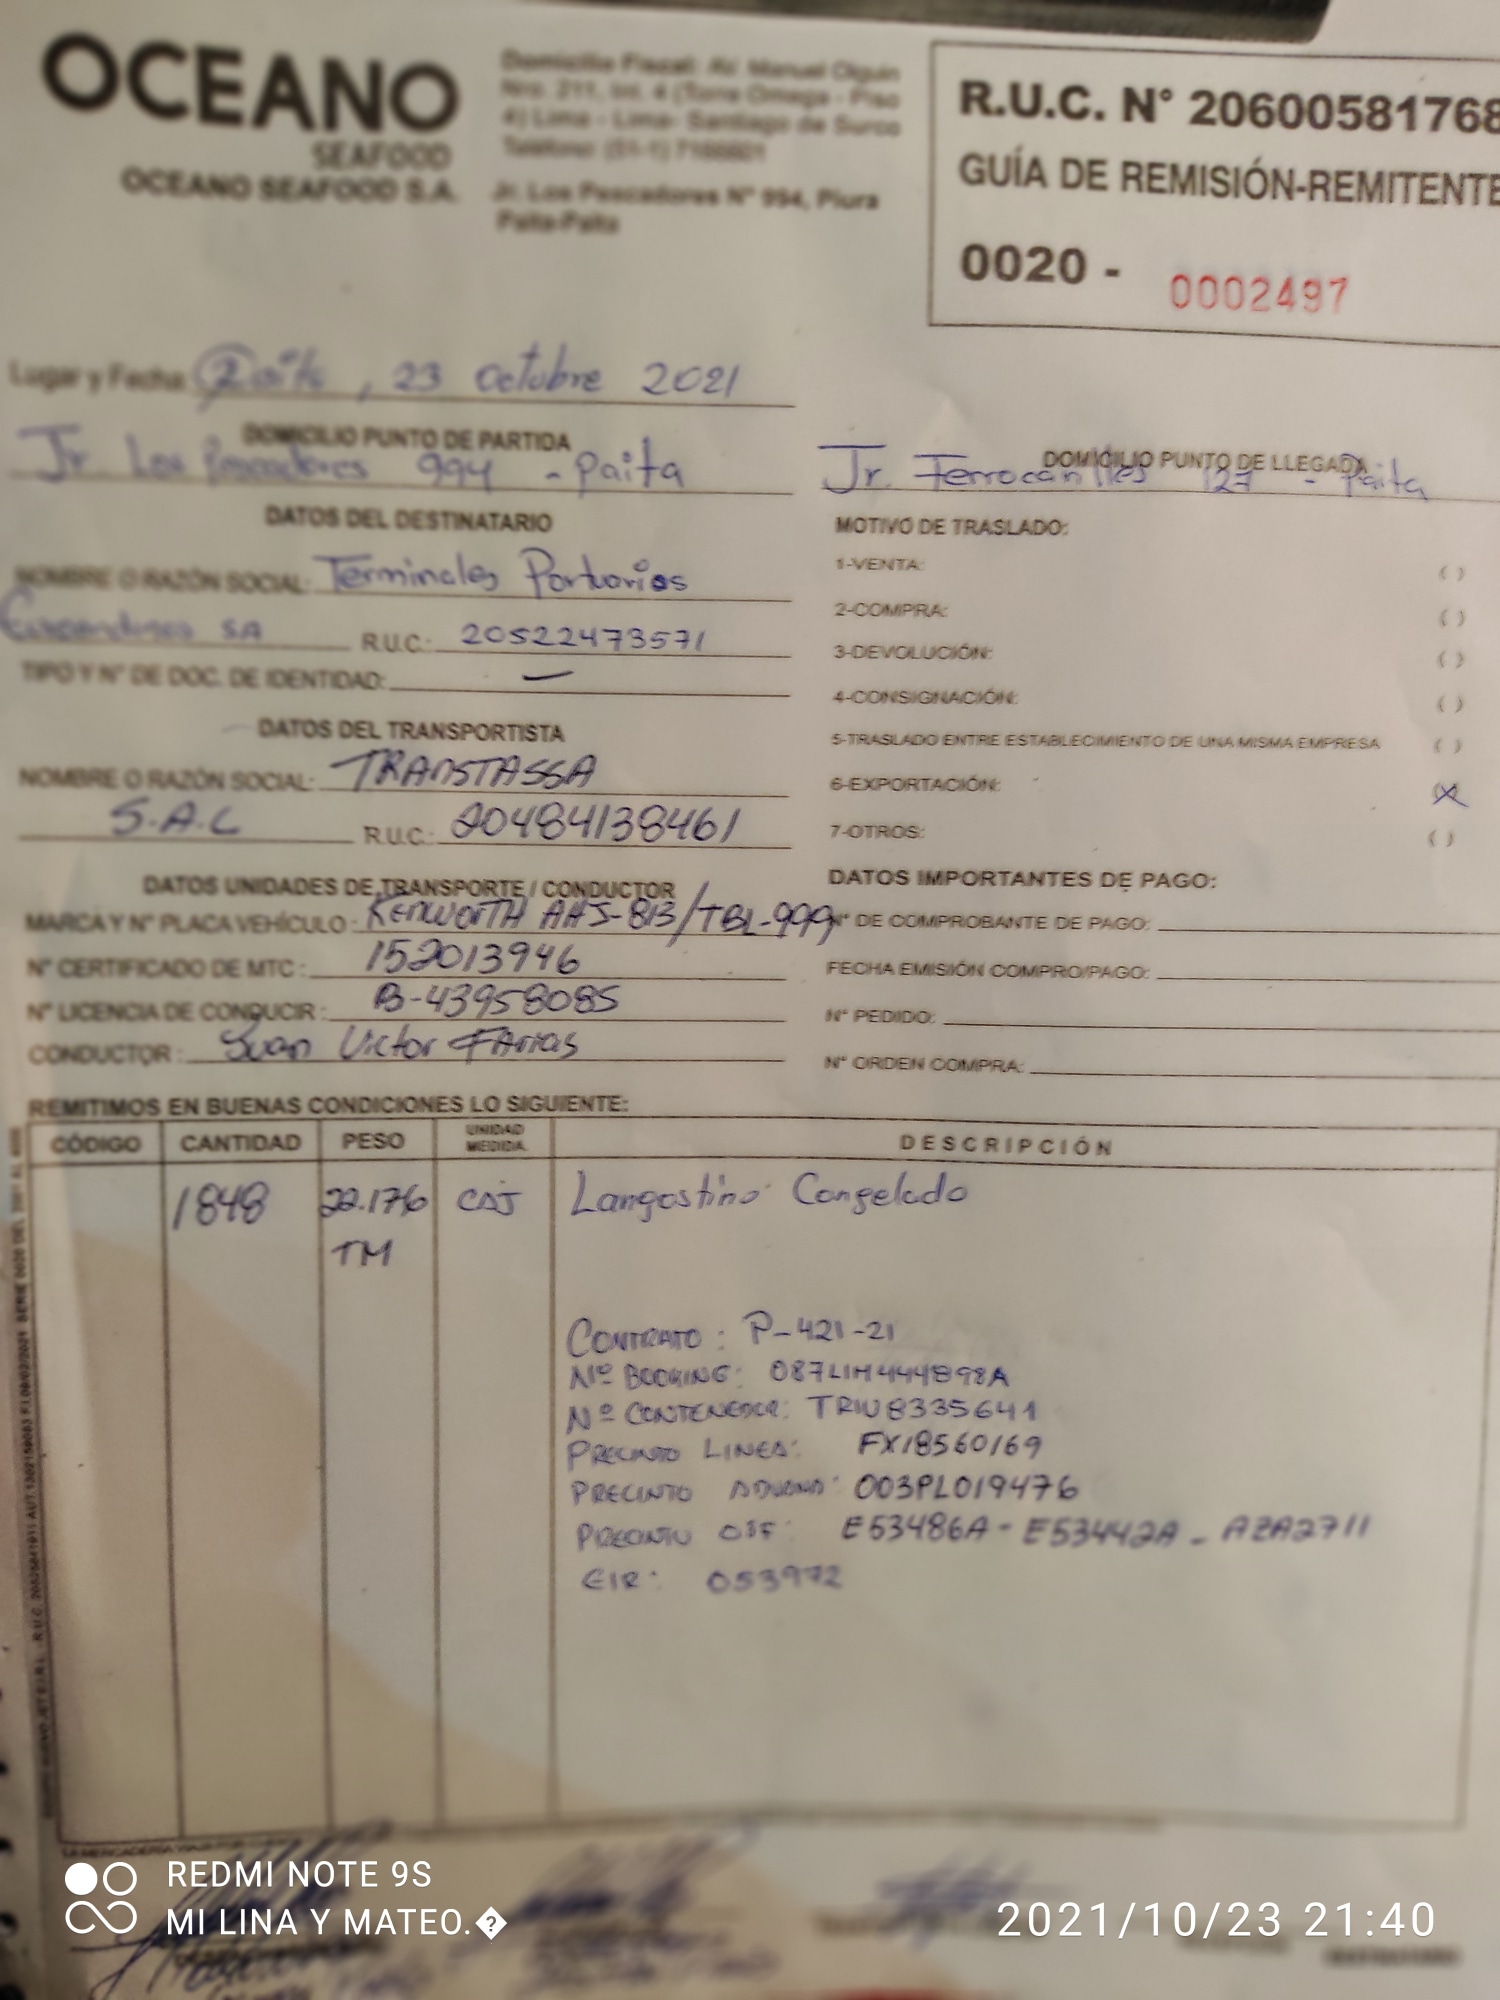 OCEANO
SEAFOOD
OCEANO SEAFOOD S.A.
Domicilio Fiscal: Av. Manuel Olguin
Nro. 211, Int. 4 (Torre Omega - Piso
4) Lima - Lima- Santiago de Surco
Teléfono: (51-1)
Jr. Los Pescadores N° 994, Piura
Paita-Paita
R.U.C. N° 20600581768
GUÍA DE REMISIÓN-REMITENTE
0020 - 0002497
Lugar y Fecha: Paita, 23 Octubre 2021
DOMICILIO PUNTO DE PARTIDA
Jr Los Pescadores 994 - Paita
DOMICILIO PUNTO DE LLEGADA
Jr. Ferrocarriles 127 - Paita
DATOS DEL DESTINATARIO
NOMBRE O RAZÓN SOCIAL: Terminales Portuarios
Euroandinos SA R.U.C.: 20522473571
TIPO Y N° DE DOC. DE IDENTIDAD: —
DATOS DEL TRANSPORTISTA
NOMBRE O RAZÓN SOCIAL: TRANSTASSA
S.A.C R.U.C.: 20484138461
DATOS UNIDADES DE TRANSPORTE / CONDUCTOR
MARCA Y N° PLACA VEHÍCULO: KENWORTH AHJ-813/TBL-999
N° CERTIFICADO DE MTC: 152013946
N° LICENCIA DE CONDUCIR: B-43958085
CONDUCTOR: Juan Victor Farias
MOTIVO DE TRASLADO:
1-VENTA: ( )
2-COMPRA: ( )
3-DEVOLUCIÓN: ( )
4-CONSIGNACIÓN: ( )
5-TRASLADO ENTRE ESTABLECIMIENTO DE UNA MISMA EMPRESA ( )
6-EXPORTACIÓN: (X)
7-OTROS: ( )
DATOS IMPORTANTES DE PAGO:
N° DE COMPROBANTE DE PAGO:
FECHA EMISIÓN COMPRO/PAGO:
N° PEDIDO:
N° ORDEN COMPRA:
REMITIMOS EN BUENAS CONDICIONES LO SIGUIENTE:
CÓDIGO CANTIDAD PESO UNIDAD MEDIDA. DESCRIPCIÓN
1848 22.176 TM CAJ Langostino Congelado
CONTRATO: P-421-21
Nº BOOKING: 087LIM444898A
Nº CONTENEDOR: TRIU8335641
PRECINTO LINEA: FX18560169
PRECINTO ADUANA: 003PL019476
PRECINTO OSF: E53486A - E53442A - AZA2711
EIR: 053972
REDMI NOTE 9S
MI LINA Y MATEO.�
2021/10/23 21:40